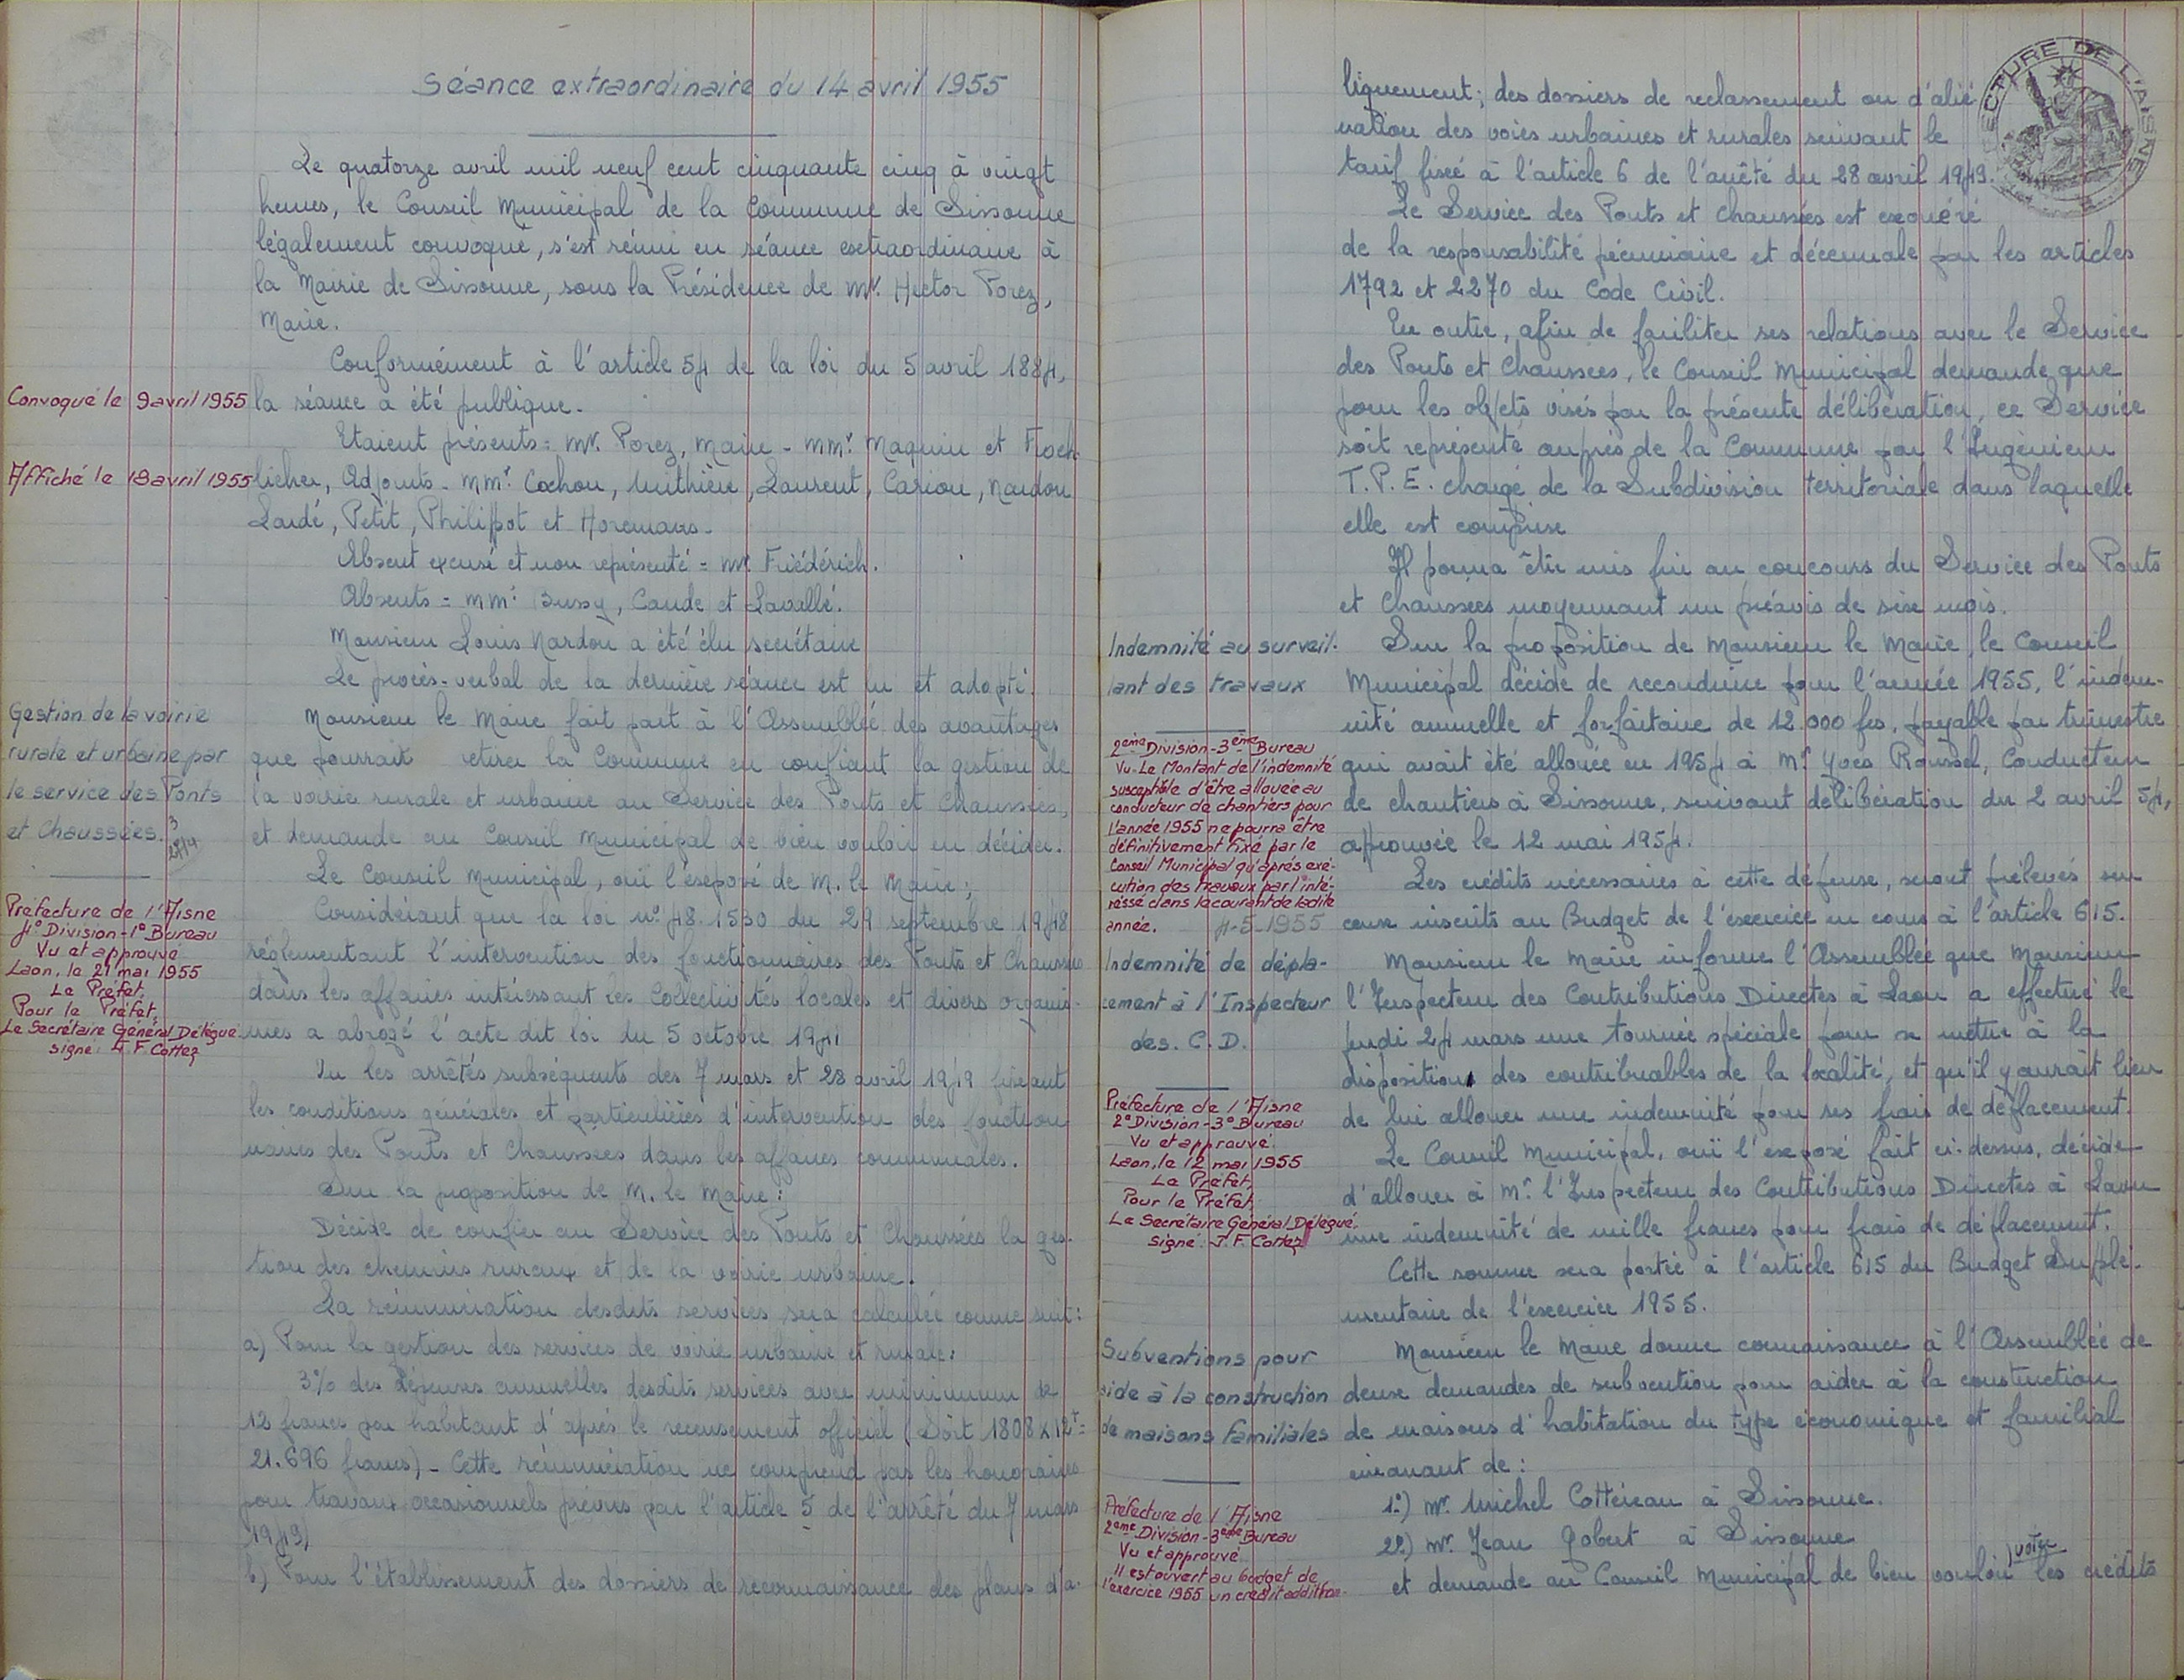 Séance extraordinaire du 14 avril 1955
Le quatorze avril mil neuf cent cinquante cinq à vingt
heures, le Conseil Municipal de la Commune de Sissonne
légalement convoqué, s'est réuni en séance extraordinaire à
la Mairie de Sissonne, sous la Présidence de Mr. Hector Porez,
Maire.
Conformément à l'article 54 de la loi du 5 avril 1884,
Convoqué le 9 avril 1955
la séance a été publique.
Etaient présents = Mr. Porez, Maire - MMrs Maquin et Froeh
Affiché le 18 avril 1955
licher, Adjoints - MMrs Cochon, Muthière, Laurent, Cariou, Nardou
Lardé, Petit, Philippot et Horemans.
Absent excusé et non représenté = Mr. Friédérich.
Absents = MMrs Bussy, Caude et Lavallé.
Monsieur Louis Nardou a été élu secrétaire
Le procès-verbal de la dernière séance est lu et adopté.
Gestion de la voirie
rurale et urbaine par
le service des Ponts
et Chaussées.
Monsieur le Maire fait part à l'Assemblée des avantages
que pourrait retirer la Commune en confiant la gestion de
la voirie rurale et urbaine au Service des Ponts et Chaussées,
et demande au Conseil Municipal de bien vouloir en décider.
Le Conseil Municipal, ouï l'exposé de M. le Maire;
Préfecture de l'Aisne
4° Division - 1° Bureau
Vu et approuvé
Laon, le 21 mai 1955
Le Préfet,
Pour le Préfet,
Le Secrétaire Général Délégué
signé: J. F. Cottez
Considérant que la loi n° 48.1530 du 29 septembre 1948
réglementant l'intervention des fonctionnaires des Ponts et Chaussées
dans les affaires intéressant les Collectivités locales et divers organis-
mes a abrogé l'acte dit loi du 5 octobre 1941
Vu les arrêtés subséquents des 7 mars et 28 avril 1949 fixant
les conditions générales et particulières d'intervention des fonction
naires des Ponts et Chaussées dans les affaires communales.
Sur la proposition de M. le Maire:
Décide de confier au Service des Ponts et Chaussées la ges-
tion des chemins ruraux et de la voirie urbaine.
La rémunération desdits services sera calculée comme suit:
a) Pour la gestion des services de voirie urbaine et rurale:
3% des dépenses annuelles desdits services avec minimum de
12 francs par habitant d'après le recensement officiel (Soit 1808 x 12f =
21.696 francs) - Cette rémunération ne comprend pas les honoraires
pour travaux occasionnels prévus par l'article 5 de l'arrêté du 7 mars
1949)
b) Pour l'établissement des dossiers de reconnaissance des plans d'a-
PREFECTURE DE L'AISNE
liguement; des dossiers de reclassement ou d'alié
nation des voies urbaines et rurales suivant le
tarif fixé à l'article 6 de l'arrêté du 28 avril 1949.
Le Service des Ponts et Chaussées est exonéré
de la responsabilité pécuniaire et décennale par les articles
1792 et 2270 du Code Civil.
En outre, afin de faciliter ses relations avec le Service
des Ponts et Chaussées, le Conseil Municipal demande que
pour les objets visés par la présente délibération, ce Service
soit représenté auprès de la Commune par l'Ingénieur
T.P.E. chargé de la Subdivision territoriale dans laquelle
elle est comprise
Il pourra être mis fin au concours du Service des Ponts
et Chaussées moyennant un préavis de six mois.
Indemnité au surveil-
lant des travaux
Sur la proposition de Monsieur le Maire, le Conseil
Municipal décide de reconduire pour l'année 1955, l'indem-
nité annuelle et forfaitaire de 12.000 frs, payable par trimestre
qui avait été allouée en 1954 à Mr Yves Roussel, Conducteur
de chantiers à Sissonne, suivant délibération du 2 avril 54,
approuvée le 12 mai 1954.
2ème Division - 3ème Bureau
Vu - Le Montant de l'indemnité
susceptible d'être allouée au
conducteur de chantiers pour
l'année 1955 ne pourra être
définitivement fixé par le
Conseil Municipal qu'après exé-
cution des travaux par l'inté-
ressé dans le courant de ladite
année. 4-5-1955
Les crédits nécessaires à cette dépense, seront prélevés sur
ceux inscrits au Budget de l'exercice en cours à l'article 615.
Indemnité de dépla-
cement à l'Inspecteur
des. C. D.
Monsieur le Maire informe l'Assemblée que Monsieur
l'Inspecteur des Contributions Directes à Laon a effectué le
jeudi 24 mars une tournée spéciale pour se mettre à la
disposition des contribuables de la localité, et qu'il y aurait lieu
de lui allouer une indemnité pour ses frais de déplacement.
Préfecture de l'Aisne
2° Division - 3° Bureau
Vu et approuvé
Laon, le 12 mai 1955
Le Préfet,
Pour le Préfet,
Le Secrétaire Général Délégué,
signé: J. F. Cottez
Le Conseil Municipal, ouï l'exposé fait ci-dessus, décide
d'allouer à Mr. l'Inspecteur des Contributions Directes à Laon
une indemnité de mille francs pour frais de déplacement.
Cette somme sera portée à l'article 615 du Budget Suplé-
mentaire de l'exercice 1955.
Subventions pour
aide à la construction
de maisons familiales
Monsieur le Maire donne connaissance à l'Assemblée de
deux demandes de subvention pour aider à la construction
de maisons d'habitation du type économique et familial
émanant de:
1°) Mr. Michel Cottereau à Sissonne.
2°) Mr. Jean Gobert à Sissonne
Préfecture de l'Aisne
2ème Division - 3ème Bureau
Vu et approuvé
Il est ouvert au budget de
l'exercice 1955 un crédit addition-
et demande au Conseil Municipal de bien vouloir voter les crédits